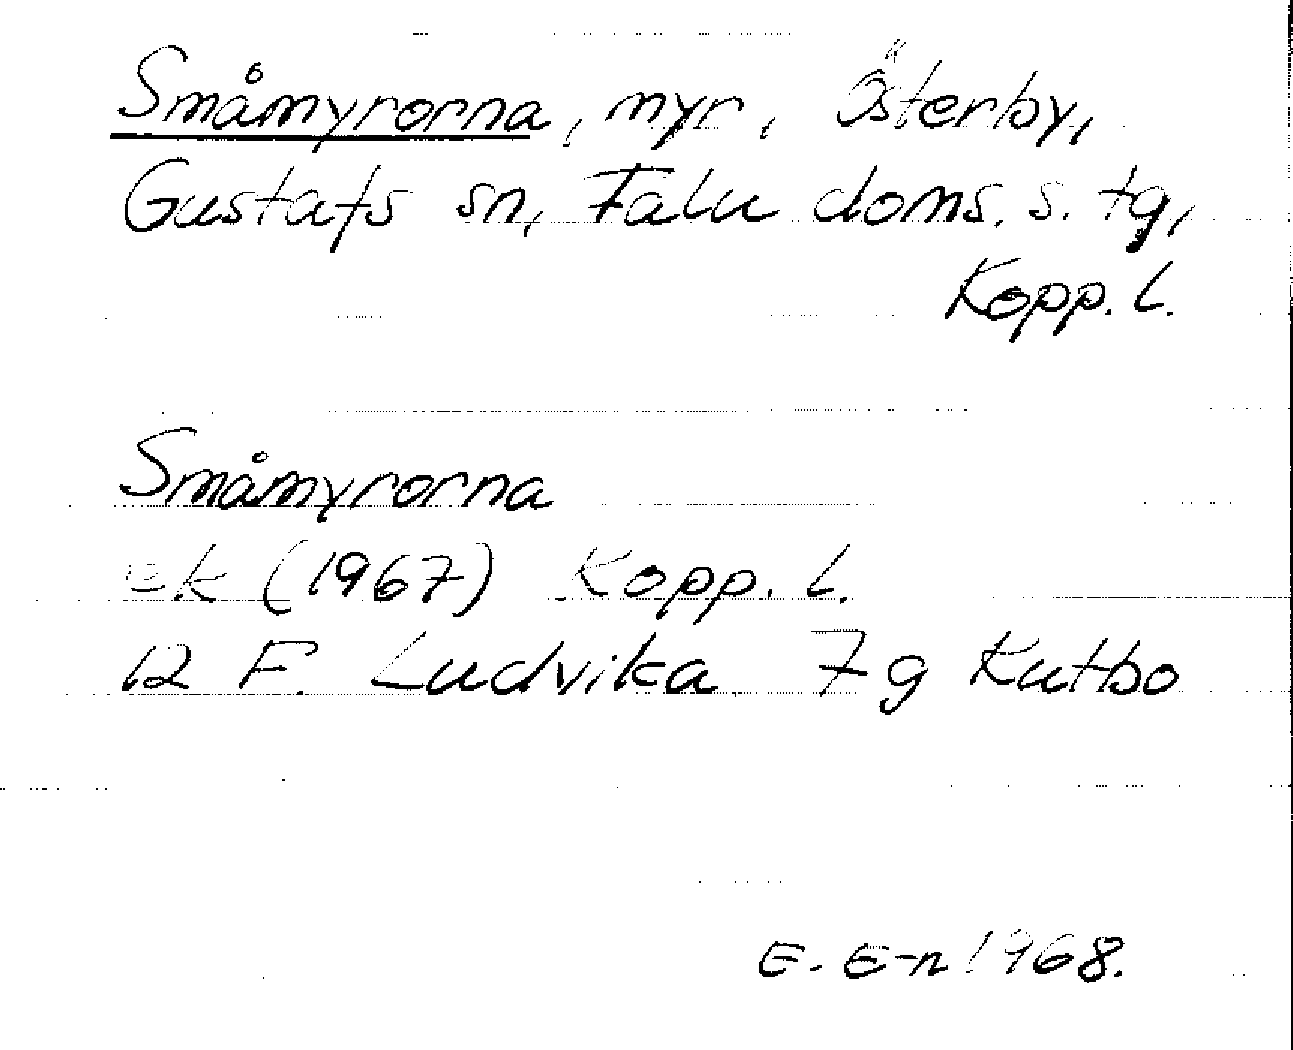 Småmyrorna, myr, Österby,
Gustafs sn, Falu doms. s. tg,
Kopp. l.
Småmyrorna
ek (1967) Kopp. l.
12 F. Ludvika 7 g Kutbo
E. E-n 1968.